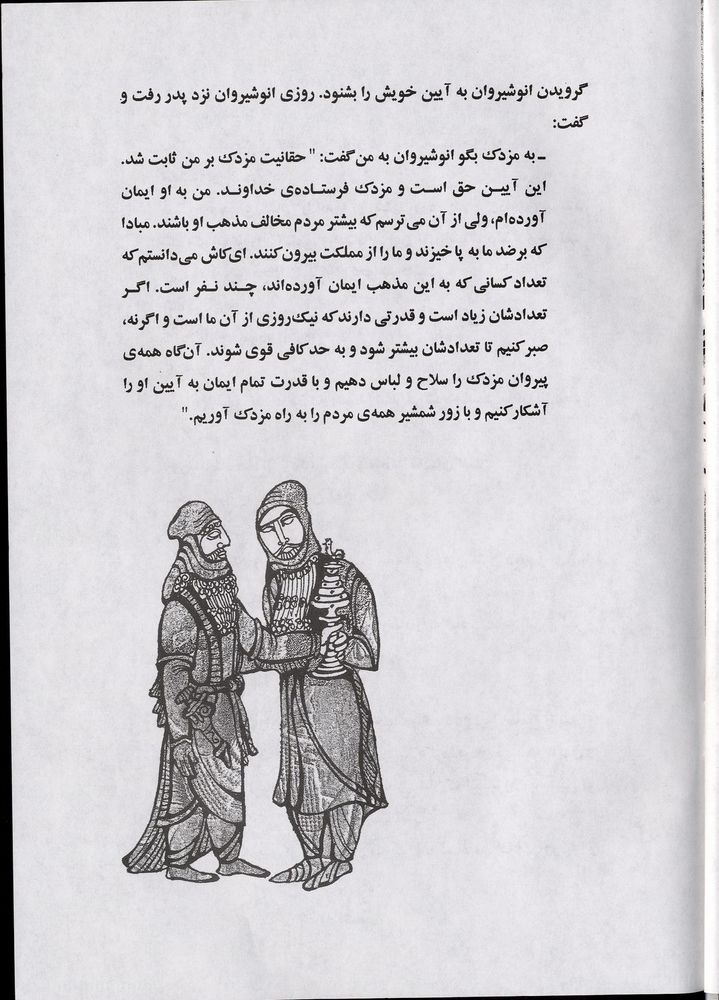 گرویدن انوشیروان به آیین خویش را بشنود. روزی انوشیروان نزد پدر رفت و
گفت:
ـ به مزدک بگو انوشیروان به من گفت: "حقانیت مزدک بر من ثابت شد.
این آیین حق است و مزدک فرستاده‌ی خداوند. من به او ایمان
آورده‌ام، ولی از آن می‌ترسم که بیشتر مردم مخالف مذهب او باشند. مبادا
که برضد ما به پا خیزند و ما را از مملکت بیرون کنند. ای کاش می‌دانستم که
تعداد کسانی که به این مذهب ایمان آورده‌اند، چند نفر است. اگر
تعدادشان زیاد است و قدرتی دارند که نیک‌روزی از آن ما است و اگرنه،
صبر کنیم تا تعدادشان بیشتر شود و به حد کافی قوی شوند. آن‌گاه همه‌ی
پیروان مزدک را سلاح و لباس دهیم و با قدرت تمام ایمان به آیین او را
آشکار کنیم و با زور شمشیر همه‌ی مردم را به راه مزدک آوریم."